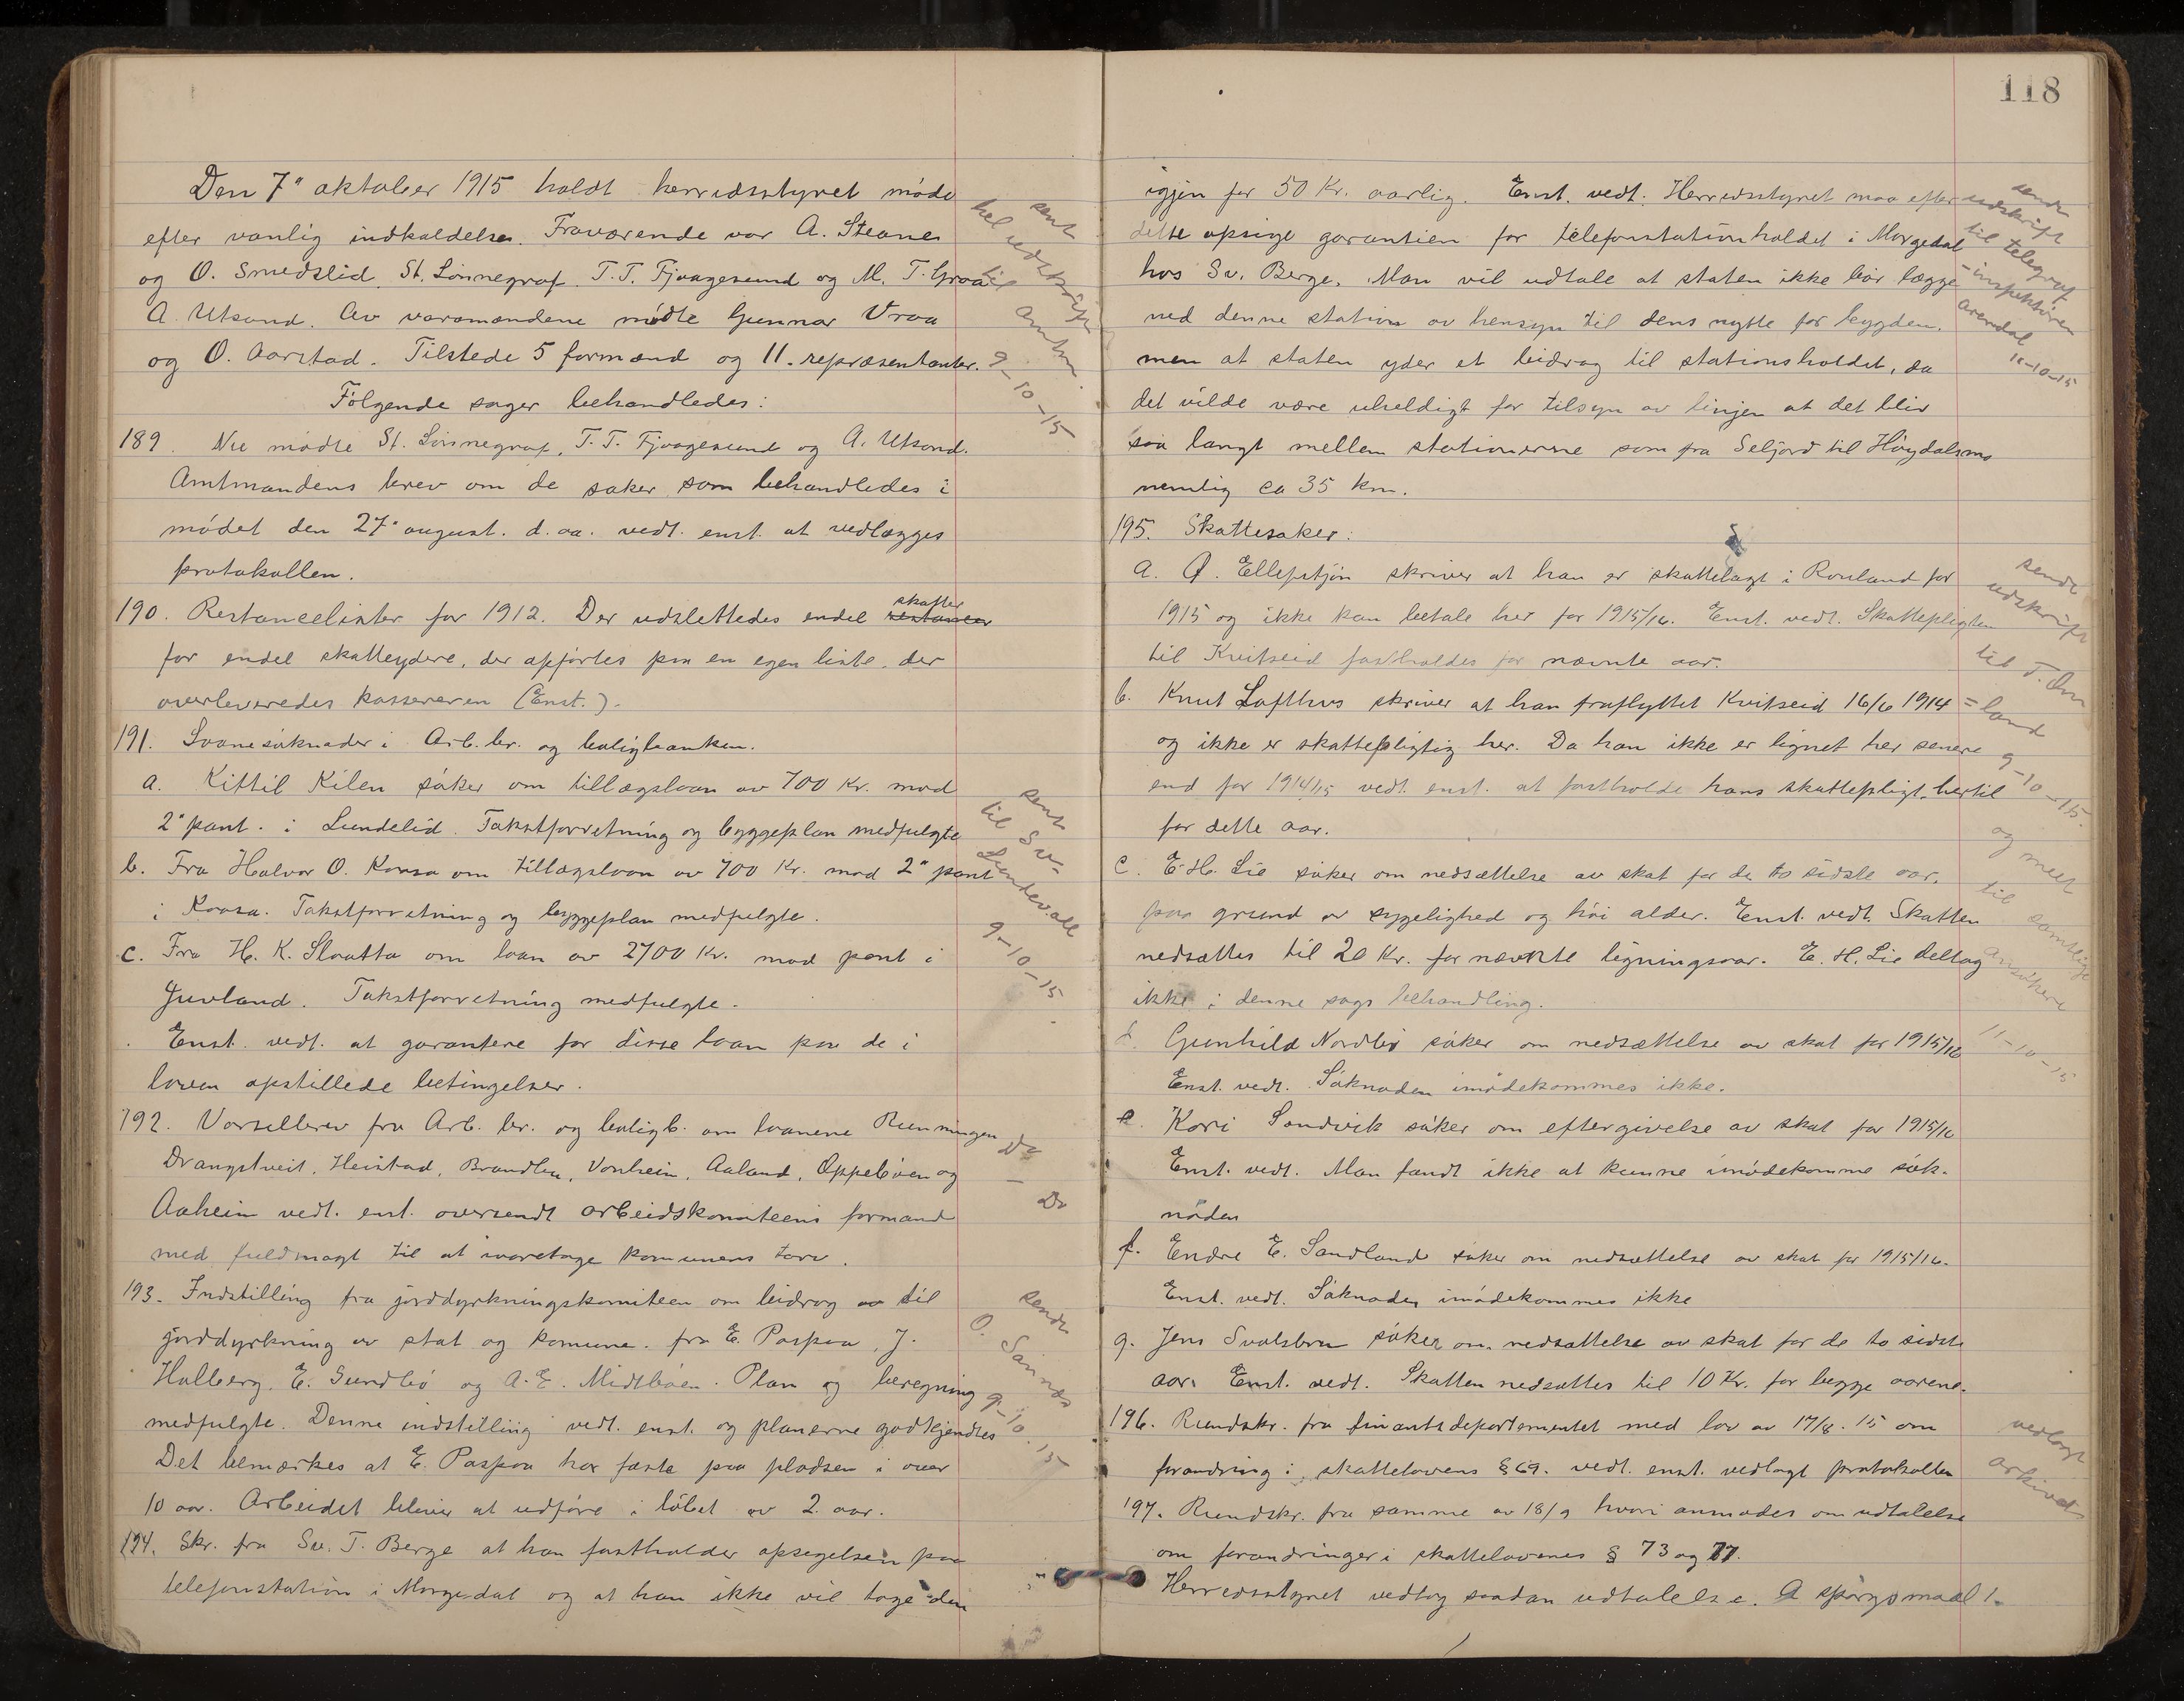 Den 7' oktober 1915 holdt herredsstyret møde
efter vanlig indkaldelse. Fraværende var A. Steane
og O. Smedslid, St. Lønnegraf. T. T. Fjaagesund og M. T. Groa
A. Utsond. Av varamændene mødte Gunnar Vraa
og O. Aarstad. Tilstede 5 formænd og 11 repræsentanter.
Følgende sager behandledes:
189. Nu mødte St. Lønnegraf, T. T. Fjaagesund og A. Utsond.
Amtmandens brev om de saker som behandledes i
mødet den 27' august. d. aa. vedt. enst. at vedlægges
protokollen.
190. Restancelister for 1912. Der udslettedes endel restancer skatter
for endel skatteydere, der opførtes paa en egen liste, der
overleveredes kassereren (Enst.).
191. Laanesøknader i Arb. br. og boligbanken.
a. Kittil Kilen søker om tillægslaan av 700 Kr. mod
2' pant. i Lundelid. Takstforretning og byggeplan medfulgte
b. Fra Halvor O. Kaasa om tillægslaan av 700 Kr. mod 2" pant
i Kaasa. Takstforretning og byggeplan medfulgte.
c. Fra H. K. Slaatta om laan av 2700 Kr. mod pant i
Juvland. Takstforretning medfulgte.
Enst. vedt. at garantere for disse laan paa de i
loven opstillede betingelser.
192. Varselbrev fra Arb. br. og boligb. om laanene Runningen
Drangstveit, Heistad, Brandlien, Vonheim, Aaland, Oppebøen og
Aaheim vedt. enst. oversendt arbeidskomiteens formand
med fuldmagt til at ivaretage komunens tarv.
193. Indstilling fra jorddyrkningskomiteen om bidrag av til
jorddyrkning av stat og komune. fra E. Paspaa, J.
Halberg, E. Sundbø og A. E. Midtbøen. Plan og beregning
medfulgte. Denne indstilling vedt. enst. og planerne godkjendtes
Det bemærkes at E. Paspaa har fæste paa pladsen i over
10 aar. Arbeidet bliver at udføre i løbet av 2 aar.
194. Skr. fra Sv. T. Berge at han fastholder opsigelsen paa
telefonstation i Morgedal og at han ikke vil tage den
sent
hel udskrift
til Amtm.
9-10-15
sent
til Sv.
Lundevall
9-10-15
Do
- Do
sendt
O. Sannes
9-10-15
118
igjen for 50 Kr. aarlig. Enst. vedt: Herredsstyret maa efter
dette opsige garantien for telefonstationholdet i Morgedal
hos Sv. Berge. Man vil udtale at staten ikke bør lægge
ned denne station av hensyn til dens nytte for bygden.
men at staten yder et bidrag til stationsholdet, da
det vilde være uheldigt for tilsyn av linjen at det blir
saa langt mellem stationerne som fra Seljord til Høydalsmo
nemlig ca 35 km.
195. Skattesaker:
a. O. Ellefstjøn skriver at han er skattelagt i Rouland for
1915 og ikke kan betale her for 1915/16. Enst. vedt. Skattepligten
til Kvitseid fastholdes for nævnte aar.
b. Knut Lofthus skriver at han fraflyttet Kvitseid 16/6 1914
og ikke er skattepligtig her. Da han ikke er lignet her senere
end for 1914/15 vedt. enst. at fastholde hans skattepligt hertil
for dette aar.
c. E. H. Lie søker om nedsættelse av skat for de to sidste aar,
paa grund av sygelighed og høi alder. Enst. vedt. Skatten
nedsættes til 20 Kr. for nævnte ligningsaar. E. H. Lie deltog
ikke i denne sags behandling.
d. Gunhild Nordbø søker om nedsættelse av skat for 1915/16
Enst. vedt. Søknaden imødekommes ikke.
e. Kari Sandvik søker om eftergivelse av skat for 1915/16
Enst. vedt. Man fandt ikke at kunne imødekomme søk-
naden
f. Endre E. Sandland søker om nedsættelse av skat for 1915/16.
Enst. vedt. Søknaden imødekommes ikke
g. Jens Svalsbru søker om nedsættelse av skat for de to sidste
aar. Enst. vedt. Skatten nedsættes til 10 Kr. for begge aarene.
196. Rundskr. fra finantsdepartementet med lov av 17/8. 15 om
forandring i skattelovens § 69. vedt. enst. vedlagt protokollen
197. Rundskr. fra samme av 18/9 hvori anmodes om udtalelse
om forandringer i skattelovenes § 73 og 77.
Herredsstyret vedtog saadan udtalelse. A spørgsmaal 1.
sendt
udskrift
til telegraf
-inspektøren
Arendal
11-10-15
sendt
udskrift
til T. Om
=land
9-10-15.
og meet
til samtlige
ansøkere
11-10-15
vedlagt
arkivet